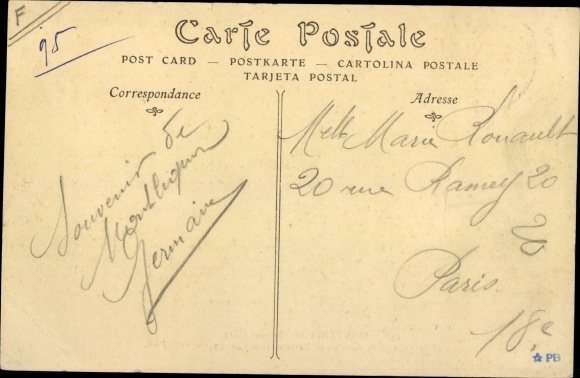 F
95
Carte Postale
POST CARD — POSTKARTE — CARTOLINA POSTALE
TARJETA POSTAL
Correspondance
Souvenir de
Germaine
Adresse
Melle Marie Rouault
20 rue Ramey 20
20
Paris
18e
PB